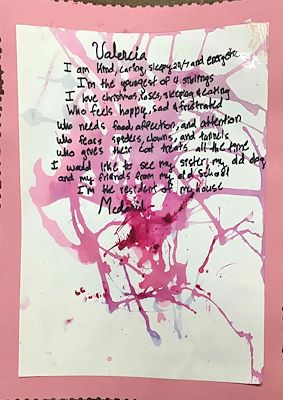 Valencia
I am kind, caring, sleepy 24/7 and energetic
I'm the youngest of 4 siblings
I love christmas, roses, sleeping & eating
Who feels happy, sad & frustrated
Who needs food, affection, and attention
Who fears spiders, clowns, and tunnels
Who gives their cat treats all the time
I would like to see my sister, my old dog
and my friends from my old school
I'm the resident of my house